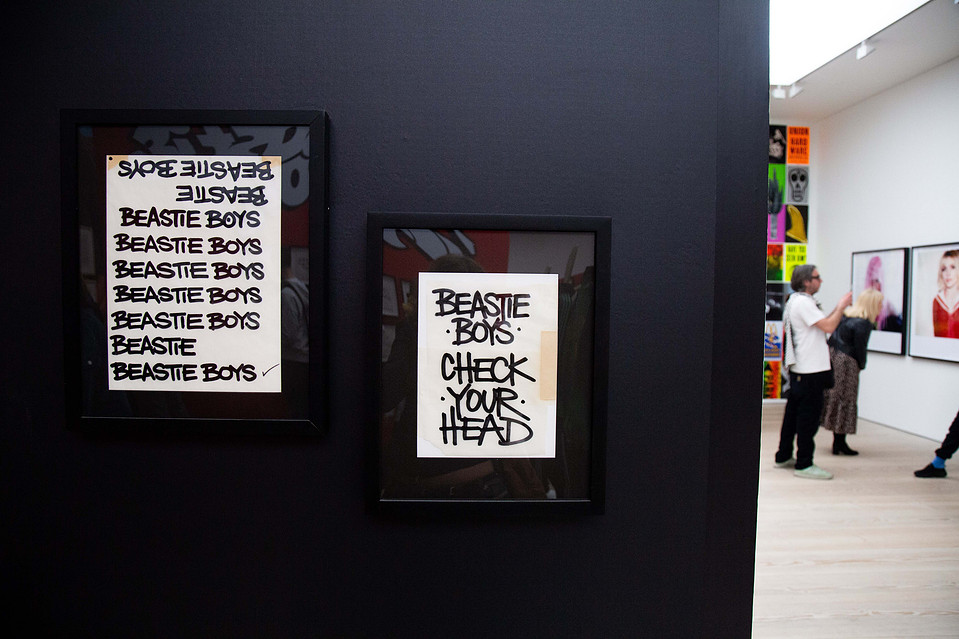 BEASTIE BOYS
BEASTIE
BEASTIE BOYS
BEASTIE BOYS
BEASTIE BOYS
BEASTIE BOYS
BEASTIE BOYS
BEASTIE
BEASTIE BOYS ✓
BEASTIE
·BOYS·
CHECK
·YOUR·
HEAD
UNION
HARD
WARE